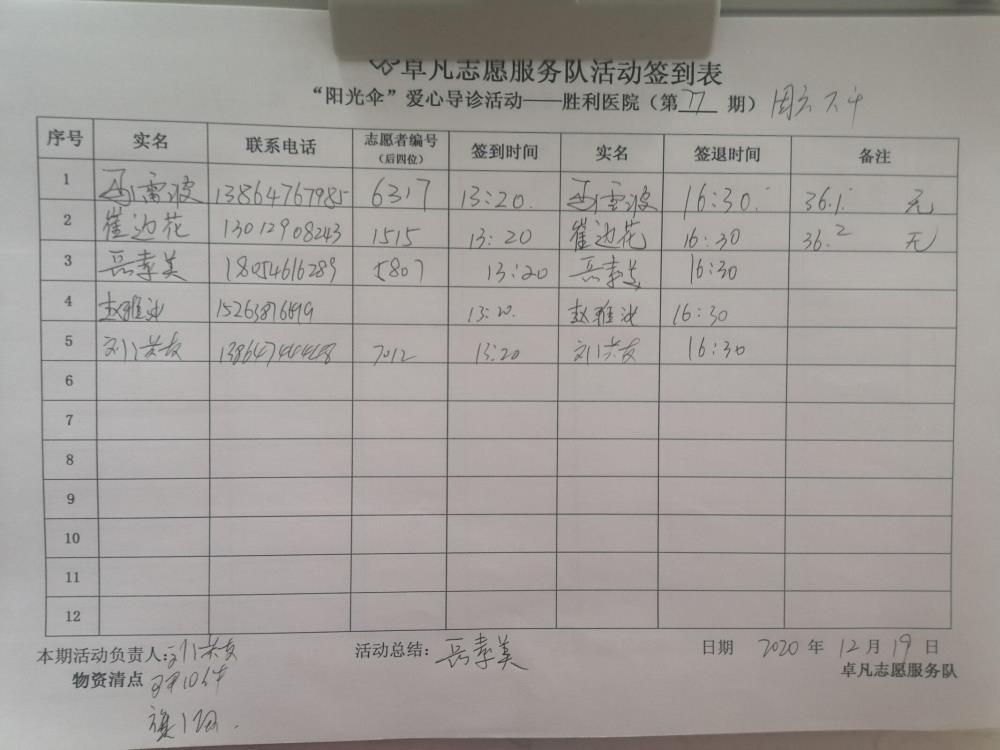 卓凡志愿服务队活动签到表
“阳光伞”爱心导诊活动——胜利医院（第 77 期）周六下午
序号 实名 联系电话 志愿者编号（后四位） 签到时间 实名 签退时间 备注
1 雷波 13864767985 6317 13:20. 雷波 16:30. 36.1 无
2 崔边花 13012908243 1515 13:20 崔边花 16:30 36.2 无
3 岳素美 18054616289 5807 13:20 岳素美 16:30
4 赵雅 13:20. 赵雅 16:30
5 刘荣友 13864744448 7012 13:20 刘荣友 16:30
6
7
8
9
10
11
12
本期活动负责人:刘荣友 活动总结: 岳素美 日期 2020 年 12 月 19 日
物资清点 10件 卓凡志愿服务队
旗1面.